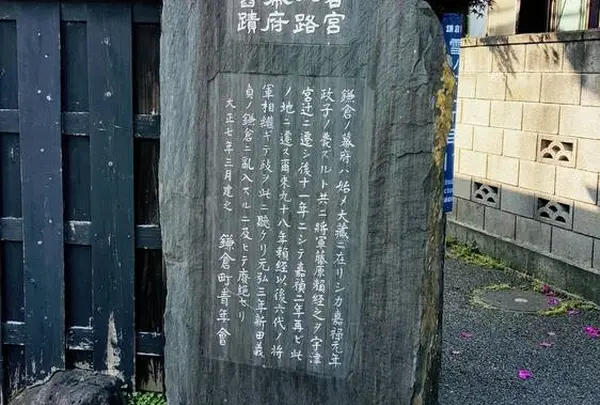 若宮
大路
幕府
舊蹟
鎌倉ノ幕府ハ始メ大藏ニ在リシガ嘉祿元年
政子ノ薨スルト共ニ將軍藤原頼經之ヲ宇津
宮辻ニ遷シ後十一年ニシテ嘉禎二年再ビ此
ノ地ニ遷ス爾來九十八年頼經以後六代ノ將
軍相繼ギテ政ヲ此ニ聽ケリ元弘三年新田義
貞ノ鎌倉ニ亂入スルニ及ビテ廢絶セリ
大正七年三月建之 鎌倉町青年會
鎌倉
雪ノ